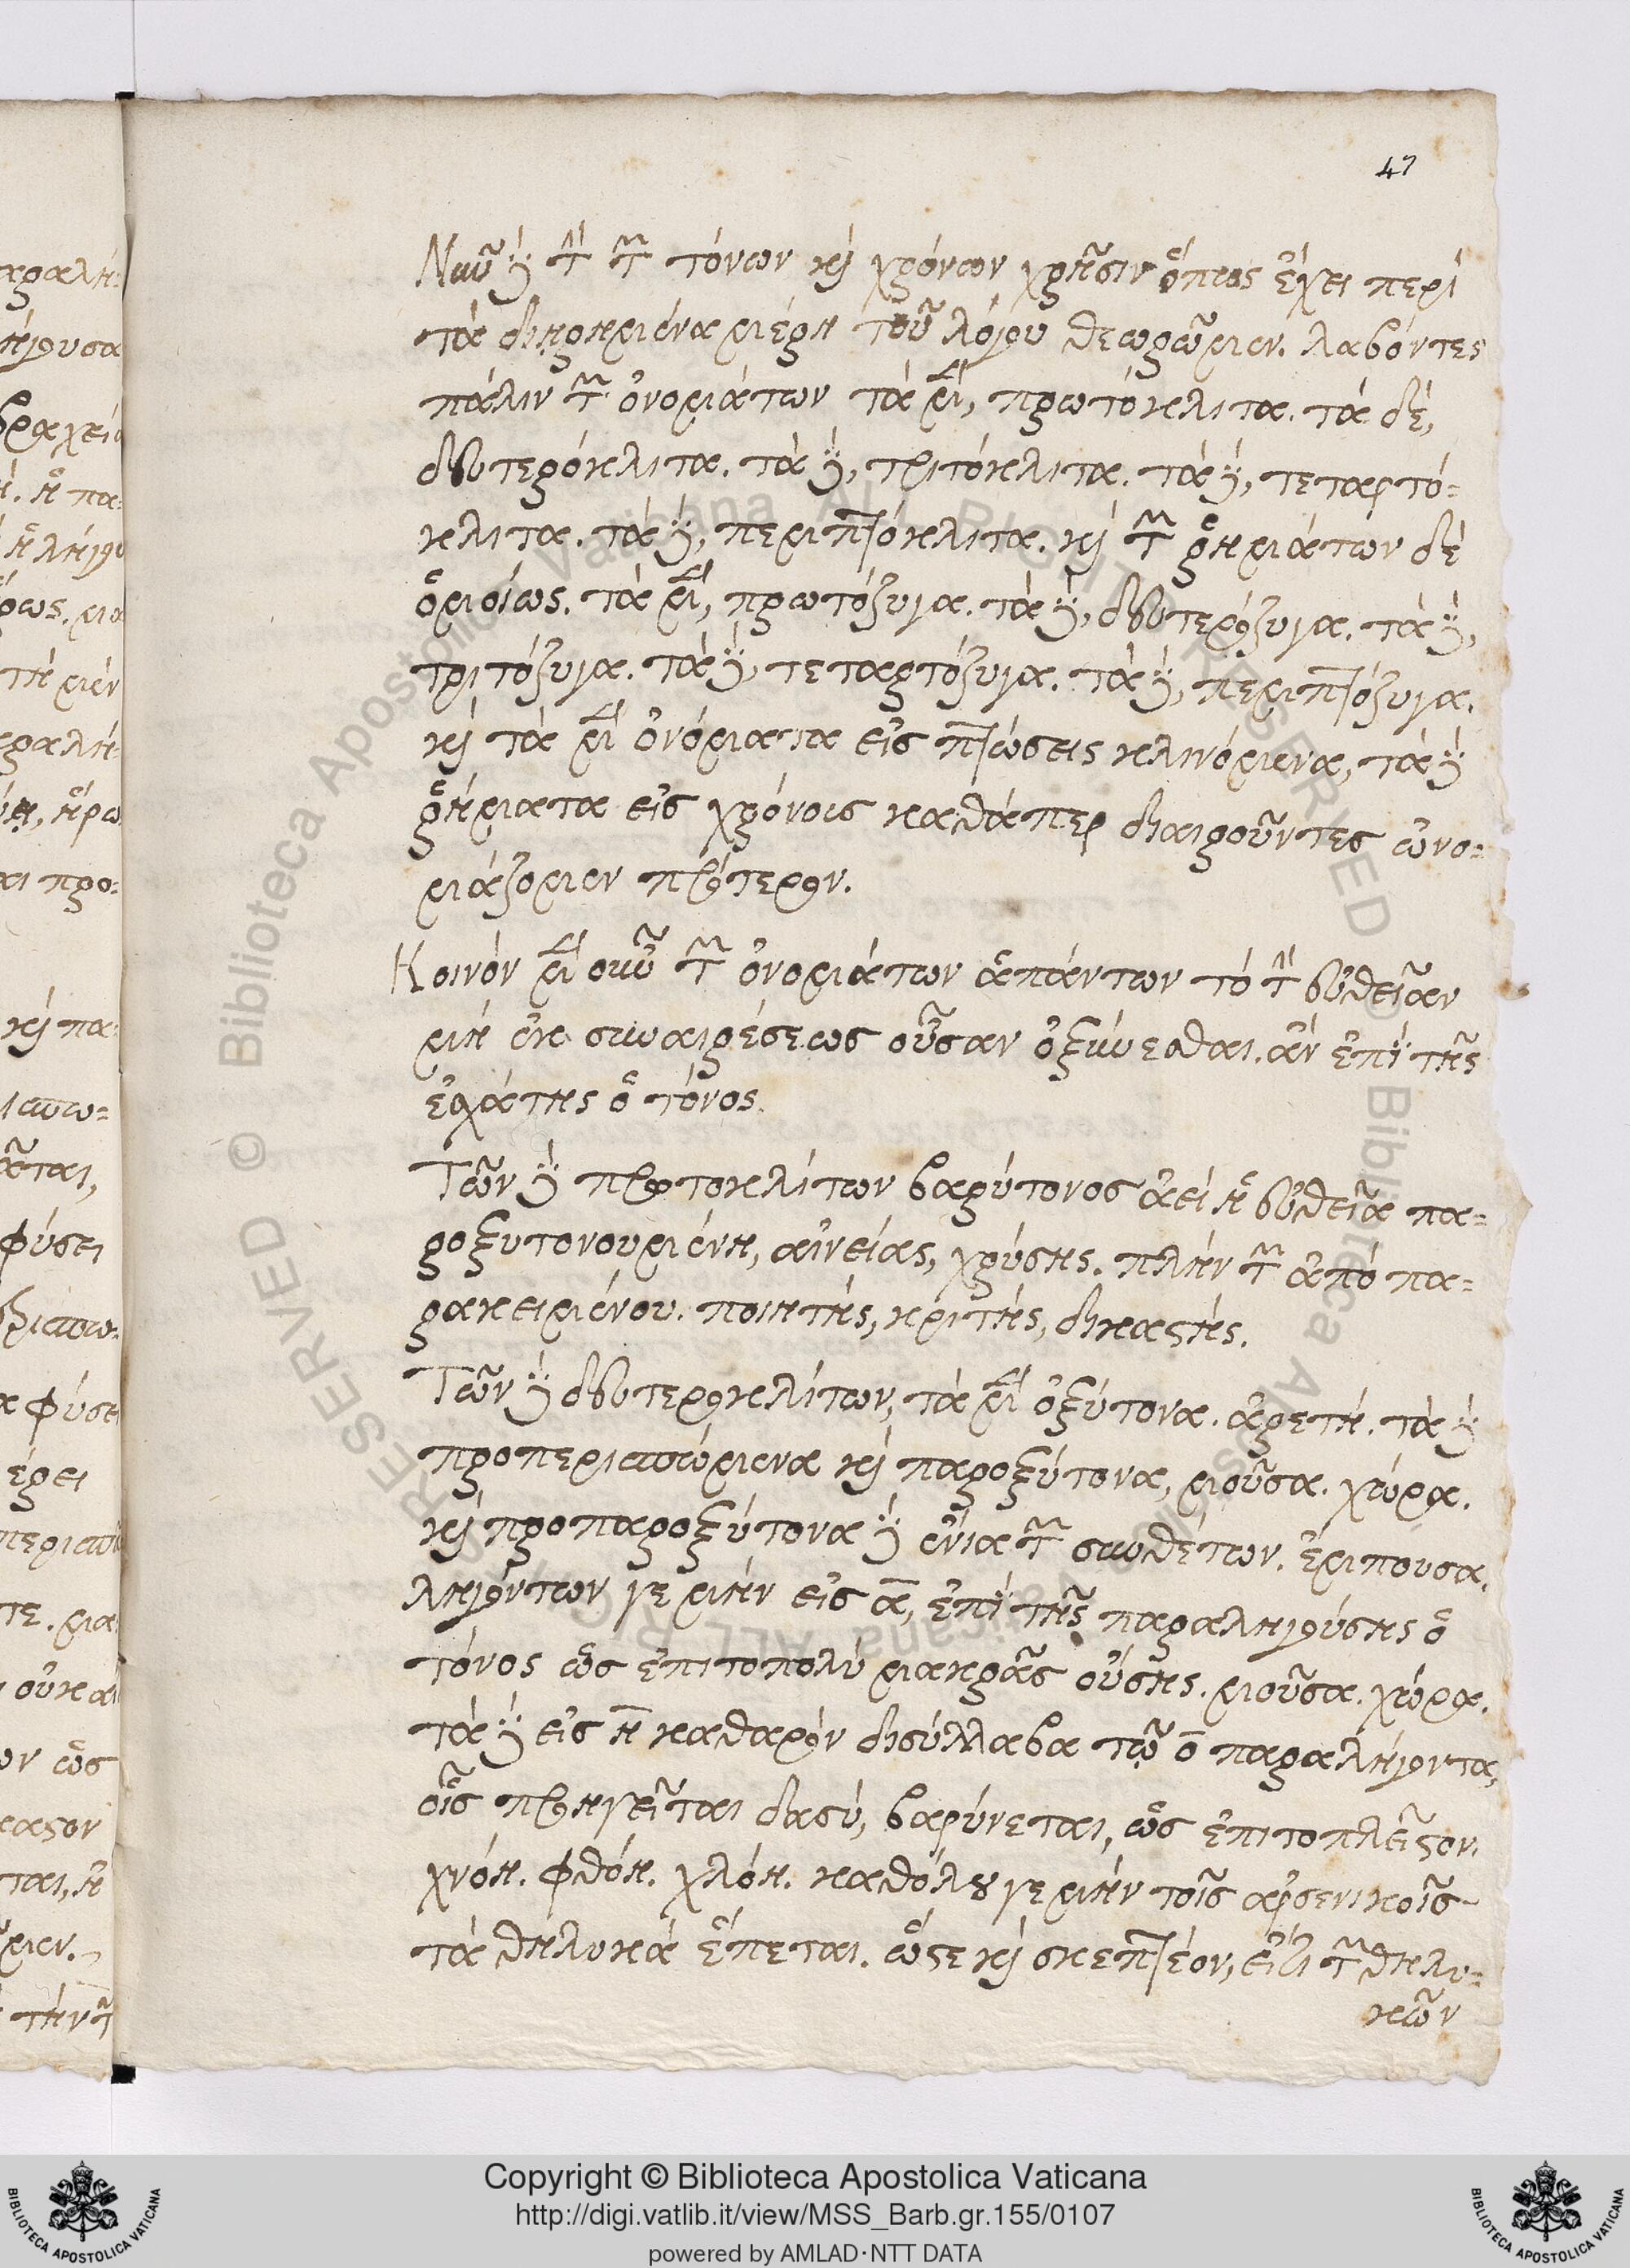 47
Νῦν δὲ τὴν τῶν τόνων καὶ χρόνων χρῆσιν ὅπως ἔχει περὶ
τὰ διῃρημένα μέρη τοῦ λόγου θεωρῶμεν. λαβόντες
πάλιν τῶν ὀνομάτων τὰ μὲν, πρωτόκλιτα. τὰ δὲ,
δευτερόκλιτα. τὰ δὲ, τριτόκλιτα. τὰ δὲ, τεταρτό=
κλιτα. τὰ δὲ, περιττόκλιτα. καὶ τῶν ῥημάτων δὲ
ὁμοίως. τὰ μὲν, πρωτόζυγα. τὰ δὲ, δευτερόζυγα. τὰ δὲ,
τριτόζυγα. τὰ δὲ, τεταρτόζυγα. τὰ δὲ, περιττόζυγα.
καὶ τὰ μὲν ὀνόματα εἰς πτώσεις κλινόμενα, τὰ δὲ
ῥήματα εἰς χρόνοις καθάπερ διαιροῦντες ὠνο=
μάζομεν πρότερον.
Κοινὸν μὲν οὖν τῶν ὀνομάτων ἁπάντων τὸ τὴν εὐθεῖαν
μὴ ἐκ συναιρέσεως οὖσαν ὀξύνεσθαι. ἂν ἐπὶ τῆς
ἐσχάτης ὁ τόνος.
Τῶν δὲ πρωτοκλίτων βαρύτονος ἀεὶ ἡ εὐθεῖα πα=
ροξυτονουμένη, αἰνείας, χρύσης. πλὴν τῶν ἀπὸ πα=
ρακειμένου. ποιητής, κριτής, δικαστής.
Τῶν δὲ δευτεροκλίτων, τὰ μὲν ὀξύτονα. ἀρετή. τὰ δὲ
προπερισπώμενα καὶ παροξύτονα, μοῦσα. χώρα.
καὶ προπαροξύτονα δὲ ἔνια τῶν συνθέτων. ἔμπουσα.
ληγόντων γε μὴν εἰς α, ἐπὶ τῆς παραληγούσης ὁ
τόνος ὡς ἐπιτοπολὺ μακρᾶς οὔσης. μοῦσα. χώρα.
τὰ δὲ εἰς η καθαρὸν δισύλλαβα τῷ ο παραλήγοντα,
οἷς προηγεῖται δασὺ, βαρύνεται, ὡς ἐπιτοπλεῖστον.
χνόη. φθόη. χλόη. καθόλου γε μὴν τοῖς ἀρσενικοῖς
τὰ θηλυκὰ ἕπεται. ὥστε καὶ σκεπτέον, εἴ τι τῶν θηλυ=
κῶν
Copyright © Biblioteca Apostolica Vaticana
http://digi.vatlib.it/view/MSS_Barb.gr.155/0107
powered by AMLAD·NTT DATA